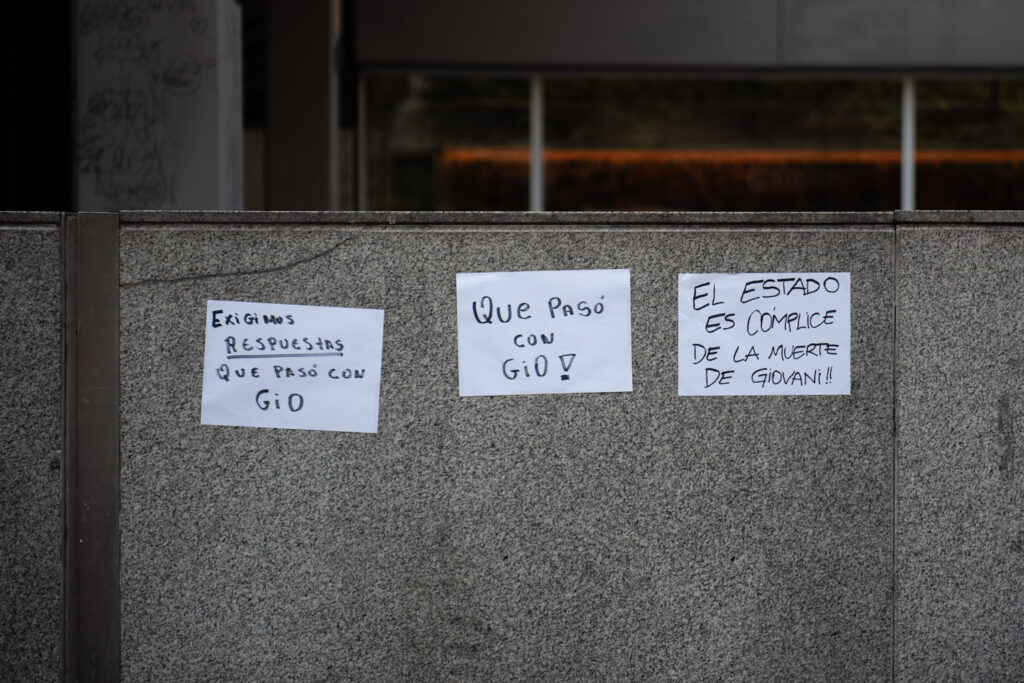 Exigimos
RESPUESTAS
QUE PASÓ CON
GIO
QUE PASÓ
CON
GIO!
EL ESTADO
ES CÓMPLICE
DE LA MUERTE
DE GIOVANI!!